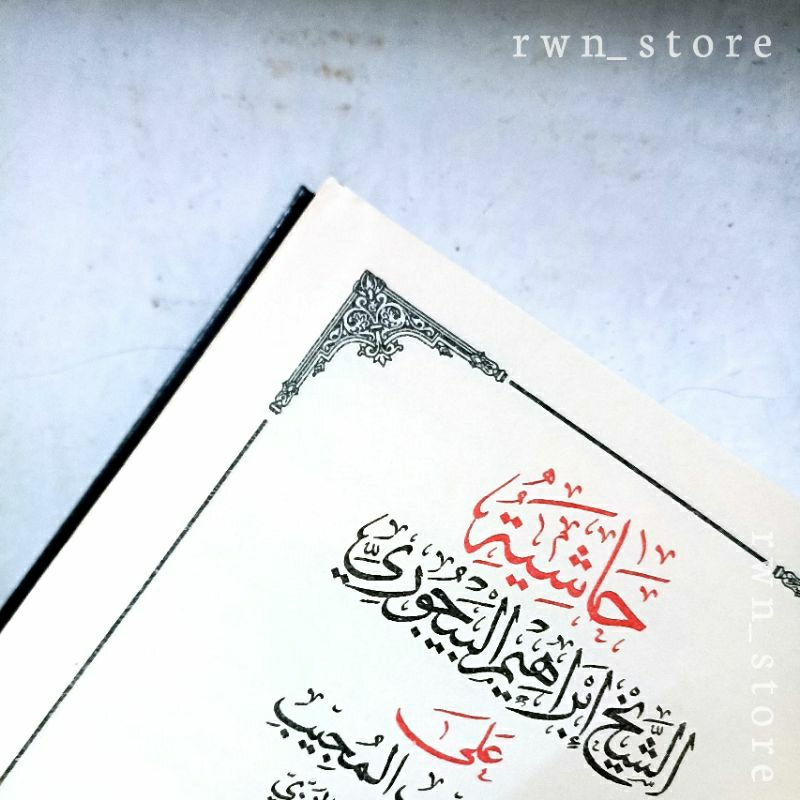 rwn_store
حَاشِيَةُ
الشَّيْخِ إِبْرَاهِيمَ الْبَيْجُورِيِّ
عَلَى
المُجِيبِ
rwn_store